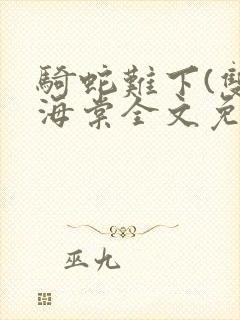 騎蛇難下(雙
海棠全文免
巫九